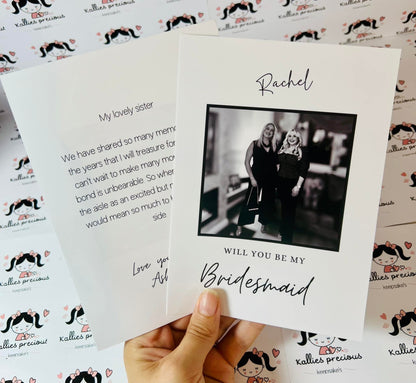 My lovely sister
We have shared so many
the years that I will treasure
can't wait to make many
bond is unbearable. So
the aisle as an excited but
would mean so much to
side
Love
Rachel
WILL YOU BE MY
Bridesmaid
Kallies precious
keepsakes